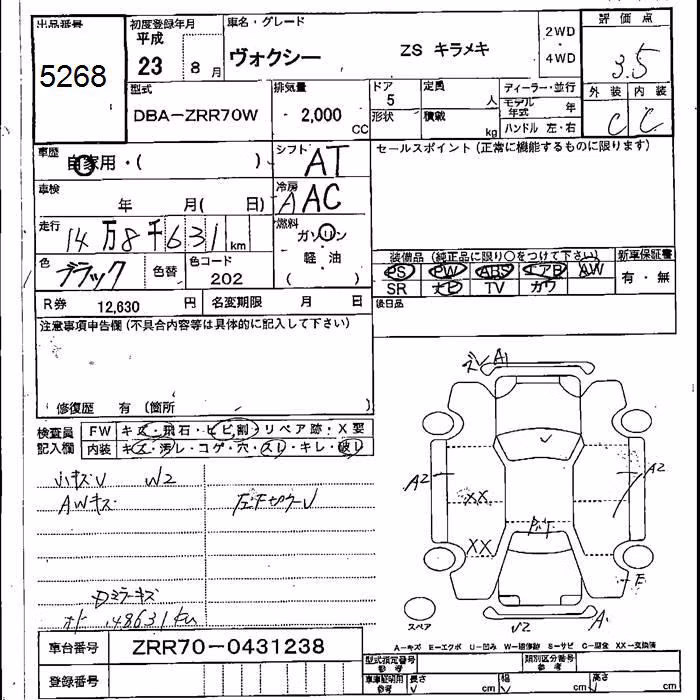 出品番号 初度登録年月 車名・グレード 評価点
5268 平成 23 8月 ヴォクシー ZS キラメキ 2WD・4WD 3.5
型式 排気量 ドア 定員 ディーラー・並行 外装 内装
DBA-ZRR70W 2,000 CC 5 人 モデル年式 年 C C
形状 積載 kg ハンドル 左・右
車歴 自家用・( ) シフト AT セールスポイント(正常に機能するものに限ります)
車検 年 月( 日) 冷房 AAC
走行 14万8千631km 燃料 ガソリン
軽・油
( )
装備品 (純正品に限り○をつけて下さい) 新車保証書
色 ブラック 色替 色コード 202 PS PW ABS エアB AW 有・無
SR ナビ TV カワ
R券 12,630 円 名変期限 月 日 後日品
注意事項申告欄(不具合内容等は具体的に記入して下さい)
修復歴 有(箇所 )
検査員 FW キズ・飛石・ヒビ,割・リペア跡・X要
記入欄 内装 キズ・汚レ・コゲ・穴・スレ・キレ・破レ
小キズV W2
AWキズ
Dミラーキズ
148631km
ズレ A1
A2 A2
XX
XX
E
スペア V2 A
A-キズ E-エクボ U-凹み W-補修跡 S-サビ C-腐食 XX-交換済
車台番号 ZRR70-0431238
登録番号
型式指定番号 参考 類別区分番号 参考
車庫証明用 参考 長さ cm 幅 cm 高さ cm